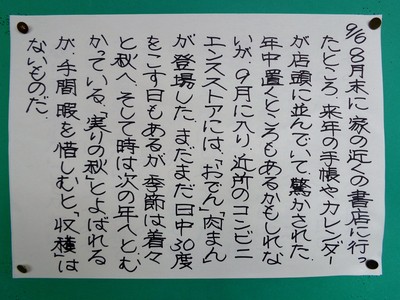 9/6 8月末に家の近くの書店に行っ
たところ、来年の手帳やカレンダー
が店頭に並んでいて驚かされた。
年中置くところもあるかもしれな
いが、9月に入り、近所のコンビニ
エンスストアには、「おでん」「肉まん」
が登場した。まだまだ日中30度
をこす日もあるが、季節は着々
と秋へ、そして時は次の年へとむ
かっている。「実りの秋」とよばれる
が、手間暇を惜しむと、「収穫」は
ないものだ。